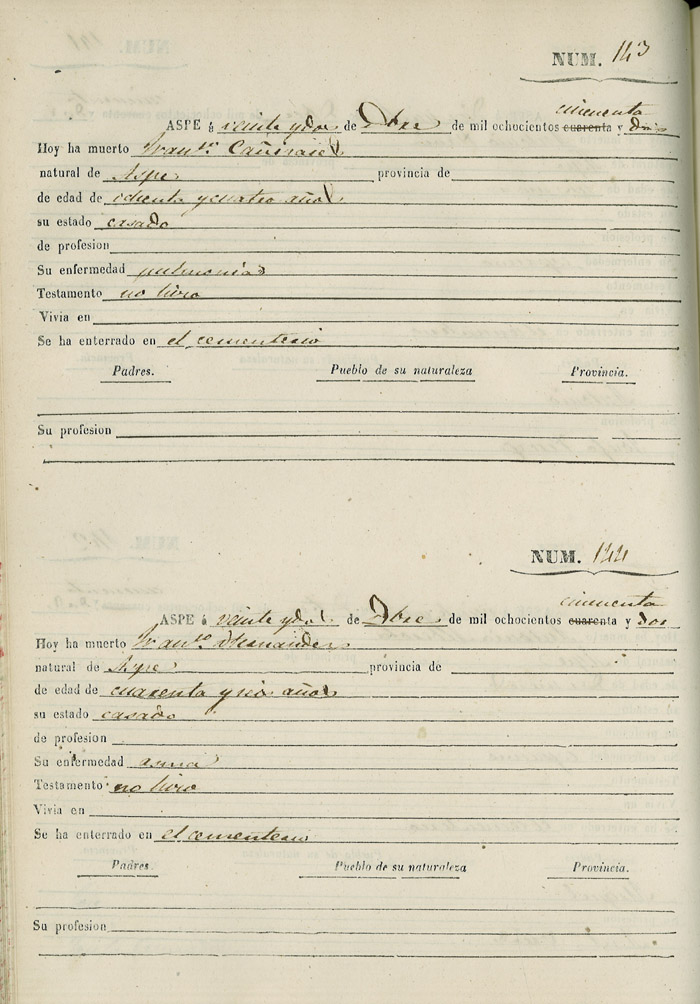 NUM. 143
cincuenta
ASPE á veinte y dos de Dbre de mil ochocientos cuarenta y dos
Hoy ha muerto Fran.co Cañizares
natural de Aspe provincia de
de edad de ochenta y cuatro años
su estado casado
de profesion
Su enfermedad pulmonia
Testamento no hizo
Vivia en
Se ha enterrado en el cementerio
Padres. Pueblo de su naturaleza Provincia.
Su profesion
NUM. 144
cincuenta
ASPE á veinte y dos de Dbre de mil ochocientos cuarenta y dos
Hoy ha muerto Fran.co Hernandez
natural de Aspe provincia de
de edad de cuarenta y seis años
su estado casado
de profesion
Su enfermedad asma
Testamento no hizo
Vivia en
Se ha enterrado en el cementerio
Padres. Pueblo de su naturaleza Provincia.
Su profesion